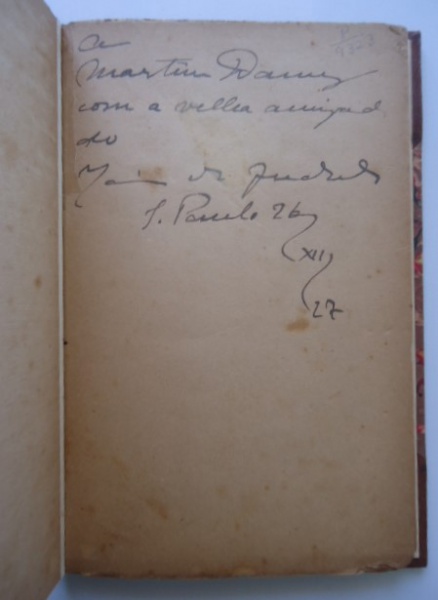 a
Martim Damy
com a velha amizad
do
Mario de Andrade
S. Paulo 26
XII
27